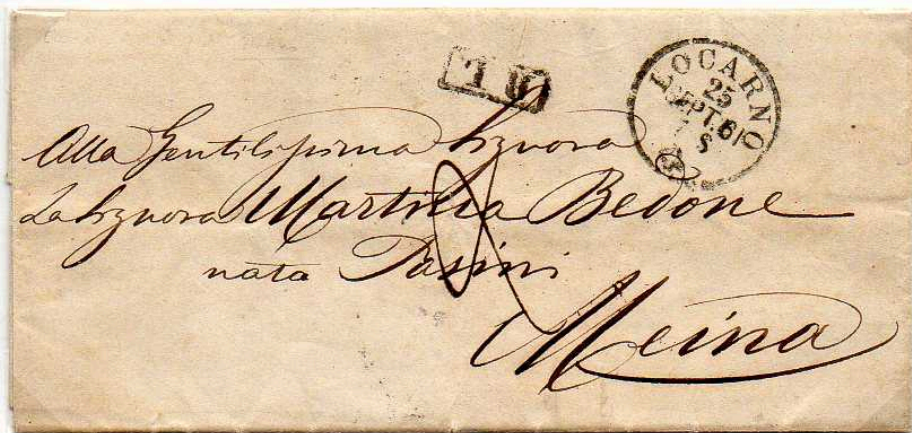 LOCARNO
25
SEPT. 61
Alla Gentilissima Signora
La Signora Bedone
nata Pasini
Meina